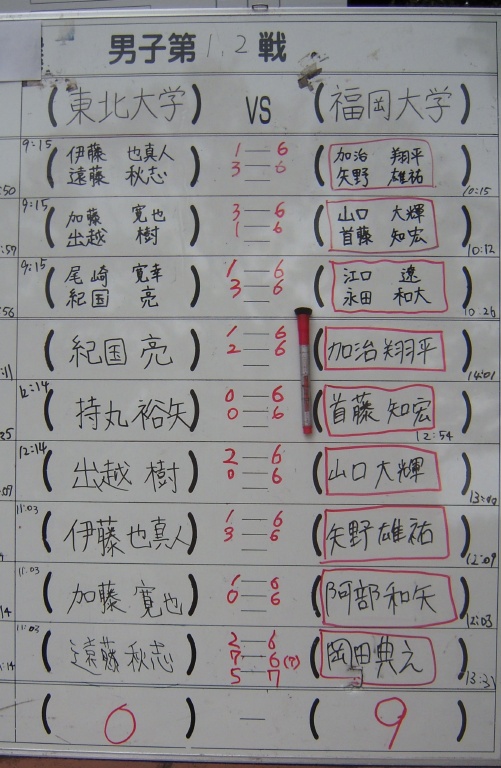 男子第1,2戦
(東北大学) VS (福岡大学)
9:15 伊藤 也真人 1 — 6 加治 翔平
遠藤 秋志 3 — 6 矢野 雄祐 10:15
9:15 加藤 寛也 3 — 6 山口 大輝
出越 樹 1 — 6 首藤 知宏 10:12
9:15 尾崎 寛幸 1 — 6 江口 遼
紀国 亮 3 — 6 永田 和大 10:26
(紀国 亮) 1 — 6 (加治翔平)
2 — 6 14:01
12:14 (持丸裕矢) 0 — 6 (首藤 知宏)
0 — 6 12:54
12:14 (出越 樹) 2 — 6 (山口大輝)
0 — 6
11:03 (伊藤也真人) 1 — 6 (矢野雄祐)
3 — 6 12:09
11:03 (加藤 寛也) 1 — 6 (阿部和矢)
0 — 6 12:03
11:03 (遠藤秋志) 2 — 6 (岡田典之)
7 — 6(7)
5 — 7 13:31
(0) — (9)